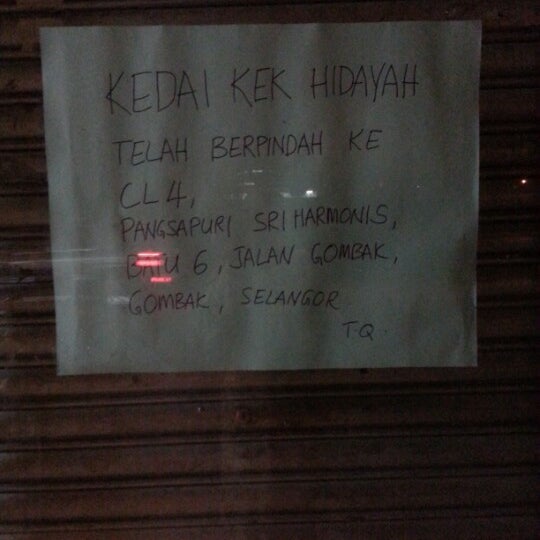 KEDAI KEK HIDAYAH
TELAH BERPINDAH KE
CL4,
PANGSAPURI SRI HARMONIS,
BATU 6, JALAN GOMBAK,
GOMBAK, SELANGOR
T.Q.